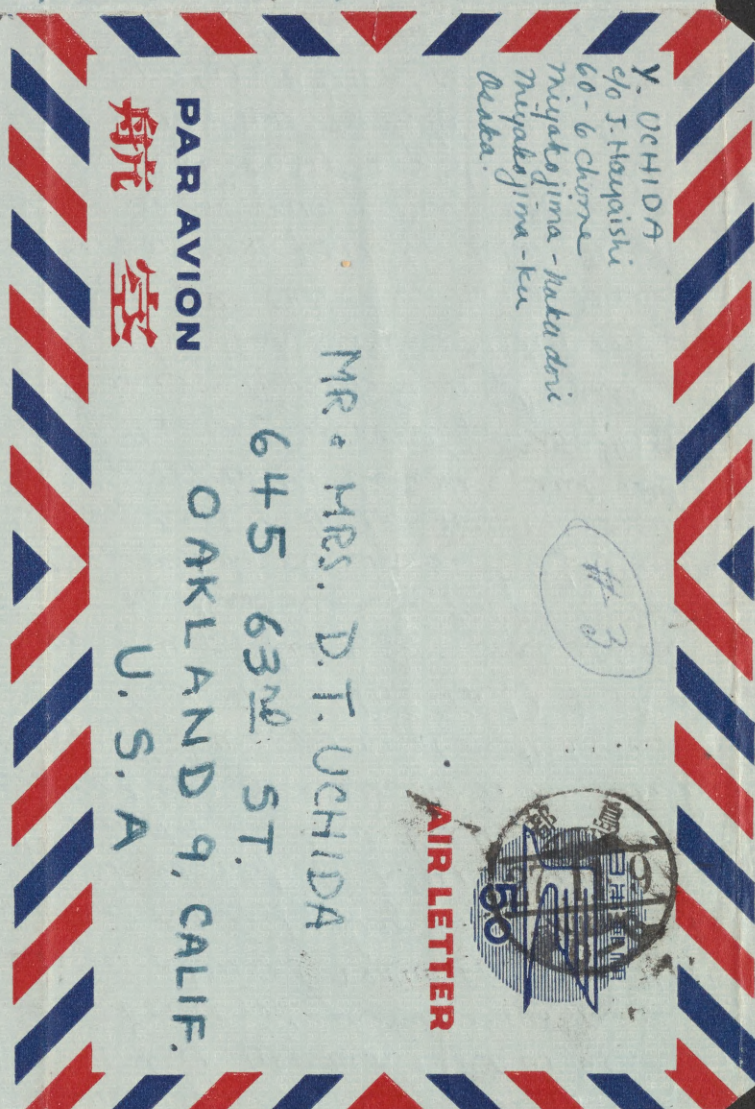 Y. UCHIDA
c/o J. Hayaishi
60-6 Chome
Miyakojima-Nakadori
Miyakojima-Ku
Osaka.
#3
AIR LETTER
50
MR & MRS. D.T. UCHIDA
645 63rd ST.
OAKLAND 9, CALIF.
U.S.A
PAR AVION
航空